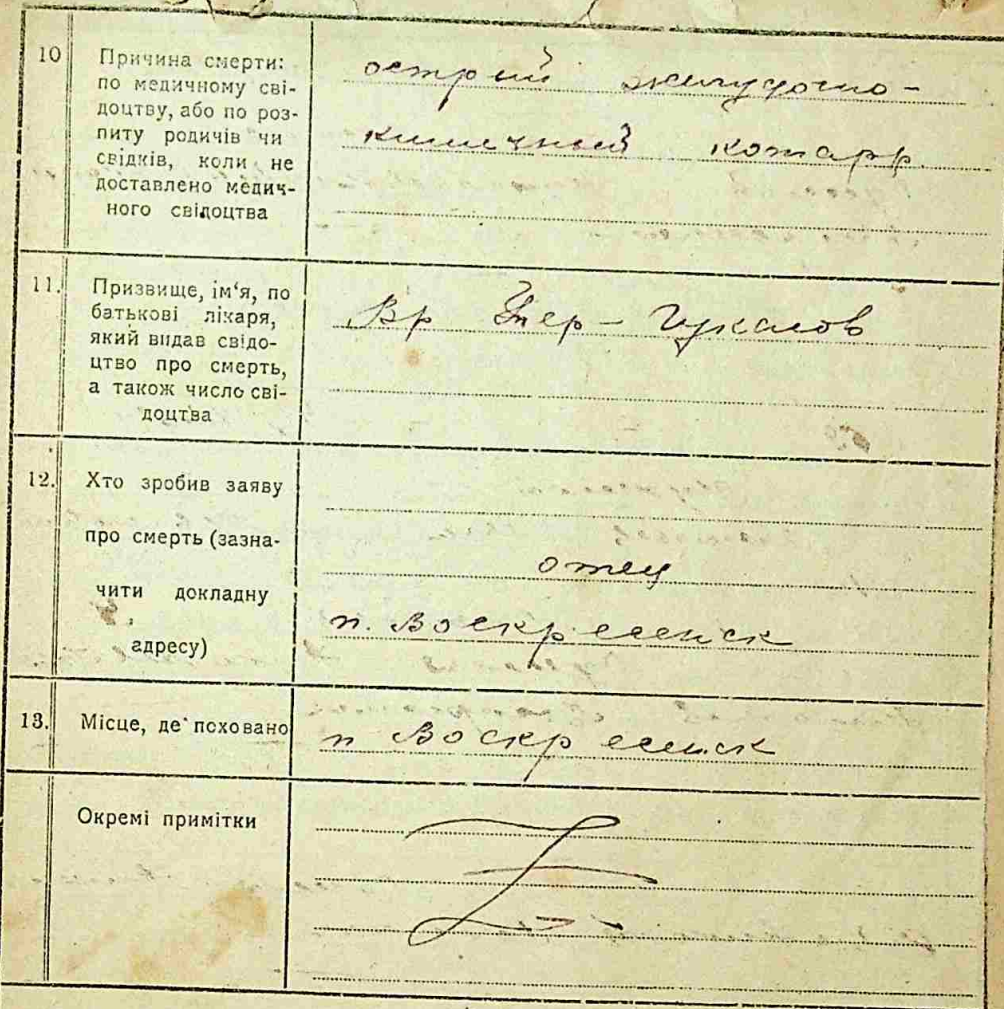 10
Причина смерти:
по медичному сві-
доцтву, або по роз-
питу родичів чи
свідків, коли не
доставлено медич-
ного свідоцтва
острый желудочно-
кишечный котарр
11.
Призвище, ім‘я, по
батькові лікаря,
який видав свідо-
цтво про смерть,
а також число сві-
доцтва
Вр Тер-
12.
Хто зробив заяву
про смерть (зазна-
чити докладну
адресу)
отец
п. Воскресенск
13.
Місце, де поховано
п Воскресенск
Окремі примітки